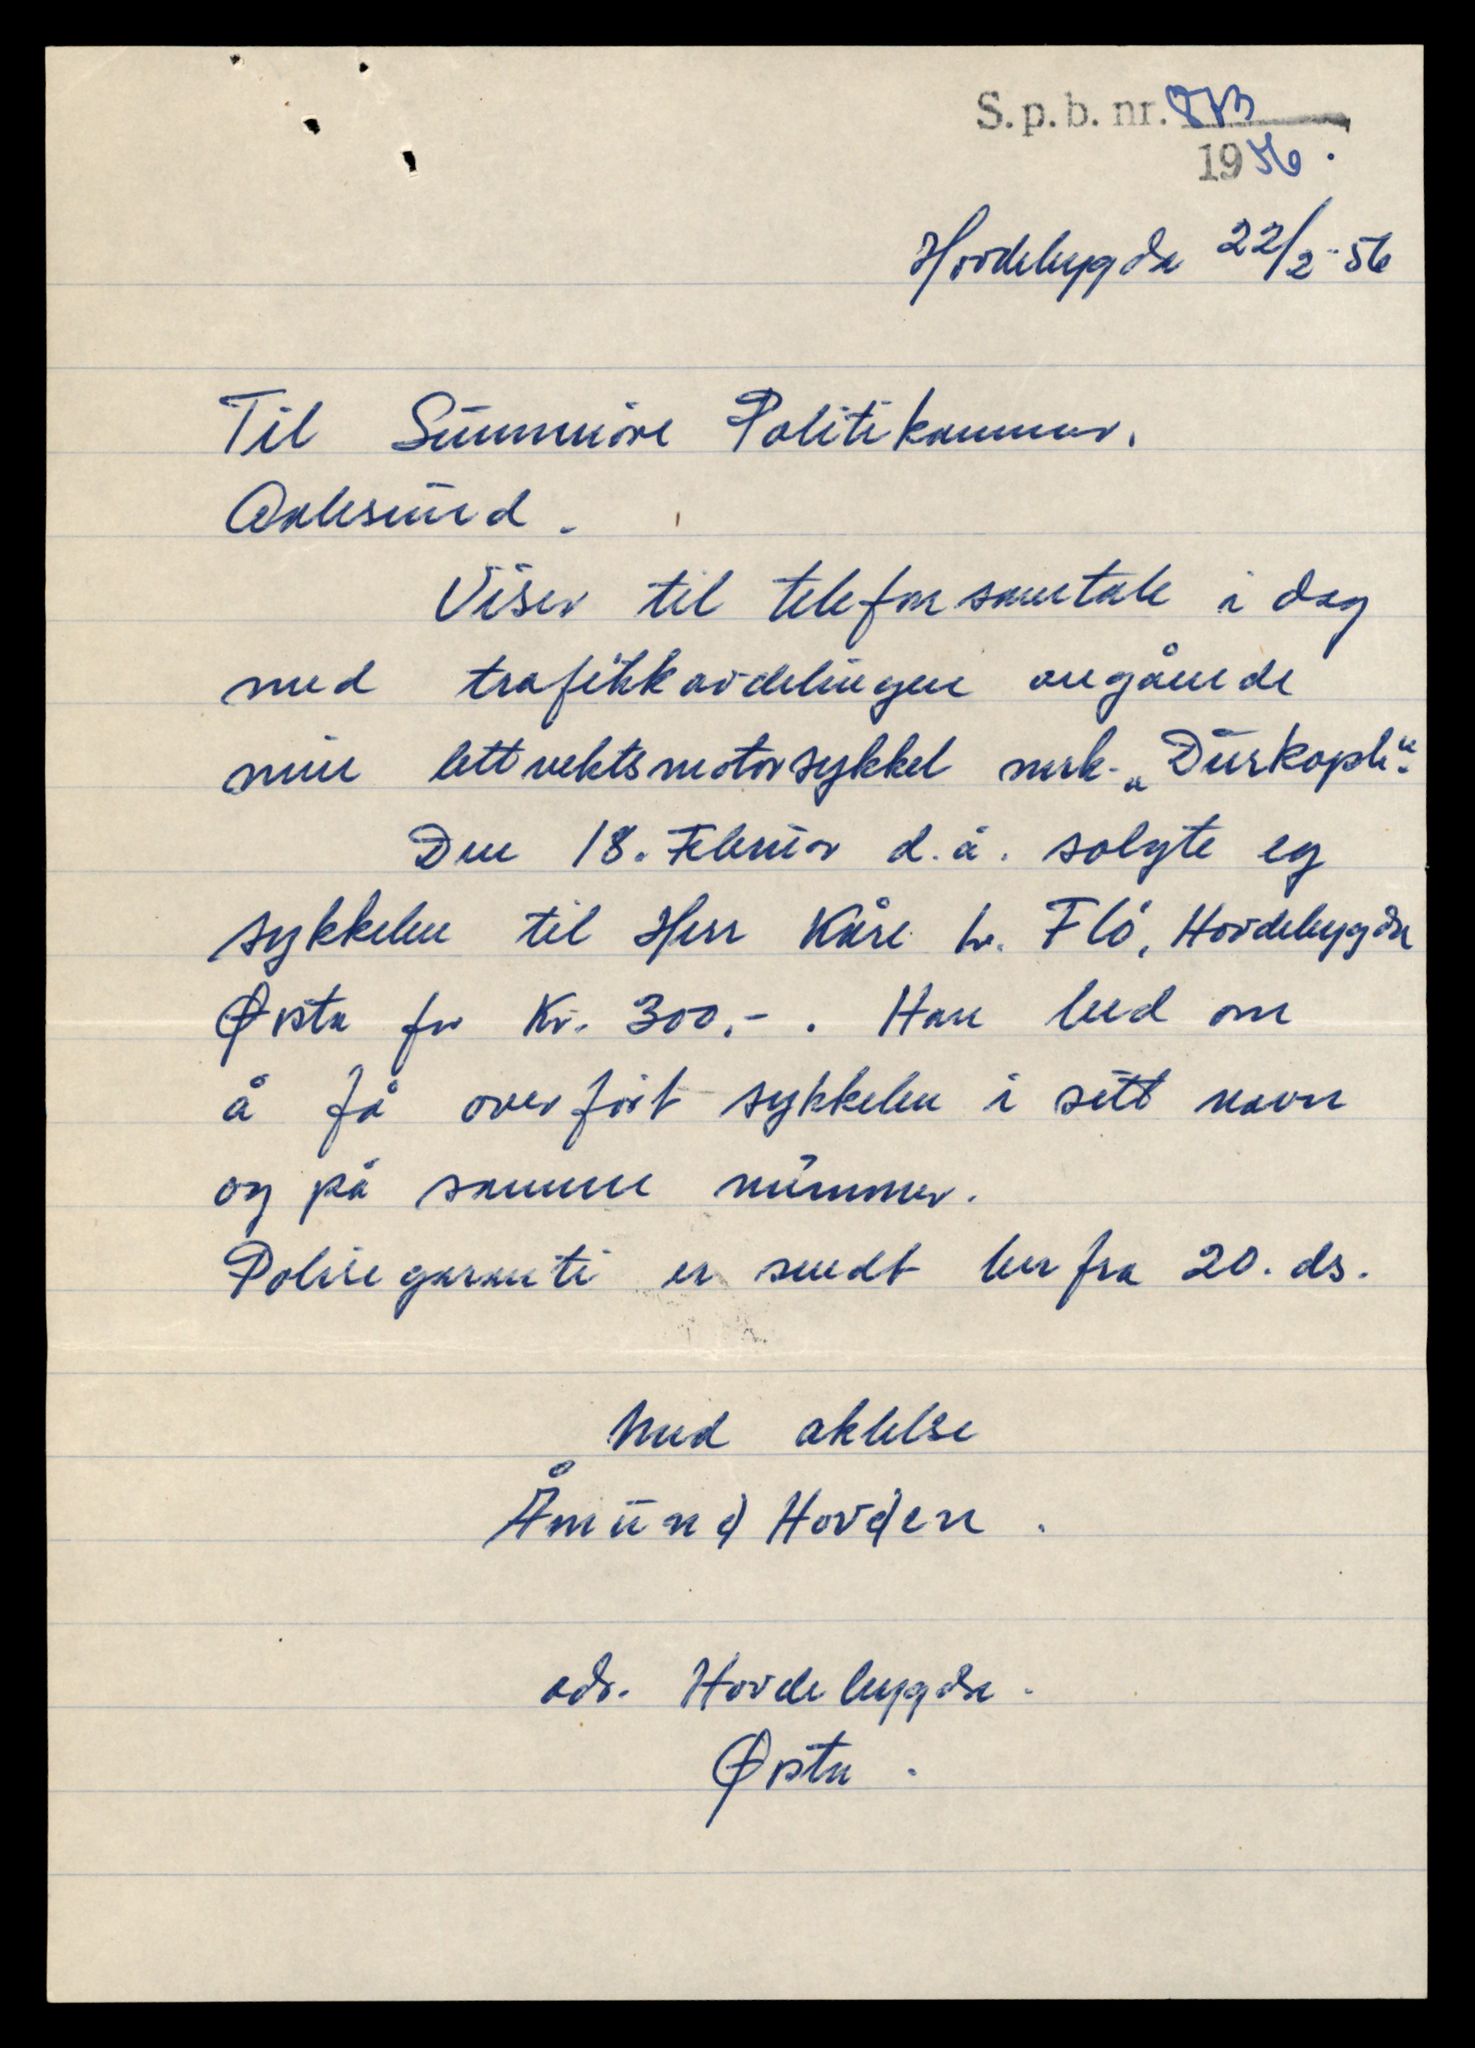 S.p.b. nr.
1956.
Hovdebygda 22/2-56
Til Sunnmöre Politikammer.
Aalesund.
Viser til telefonsamtale i dag
med trafikkavdelingen angående
min lettvektsmotorsykkel merk. „Dürkoph“.
Den 18. Februar d.å. solgte eg
sykkelen til Herr Kåre L. Flö, Hovdebygda
Ørsta for Kr. 300.- . Han bed om
å få överfört sykkelen i sitt navn
og på samme nummer.
Polisegaranti er sendt herfra 20. ds.
Med aktelse
Åmund Hovden .
adr. Hovdebygda .
Ørsta .